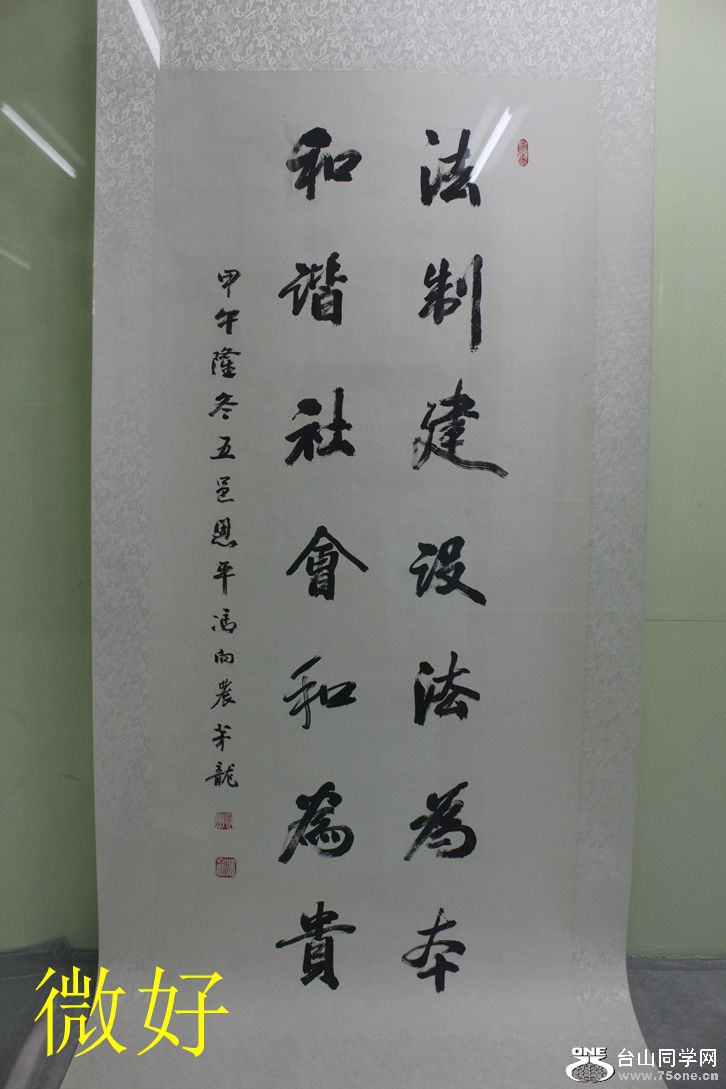 法制建设法為本
和谐社會和為貴
甲午隆冬五邑恩平冯向農茅龍
微好
ONE
台山同学网
www.75one.cn